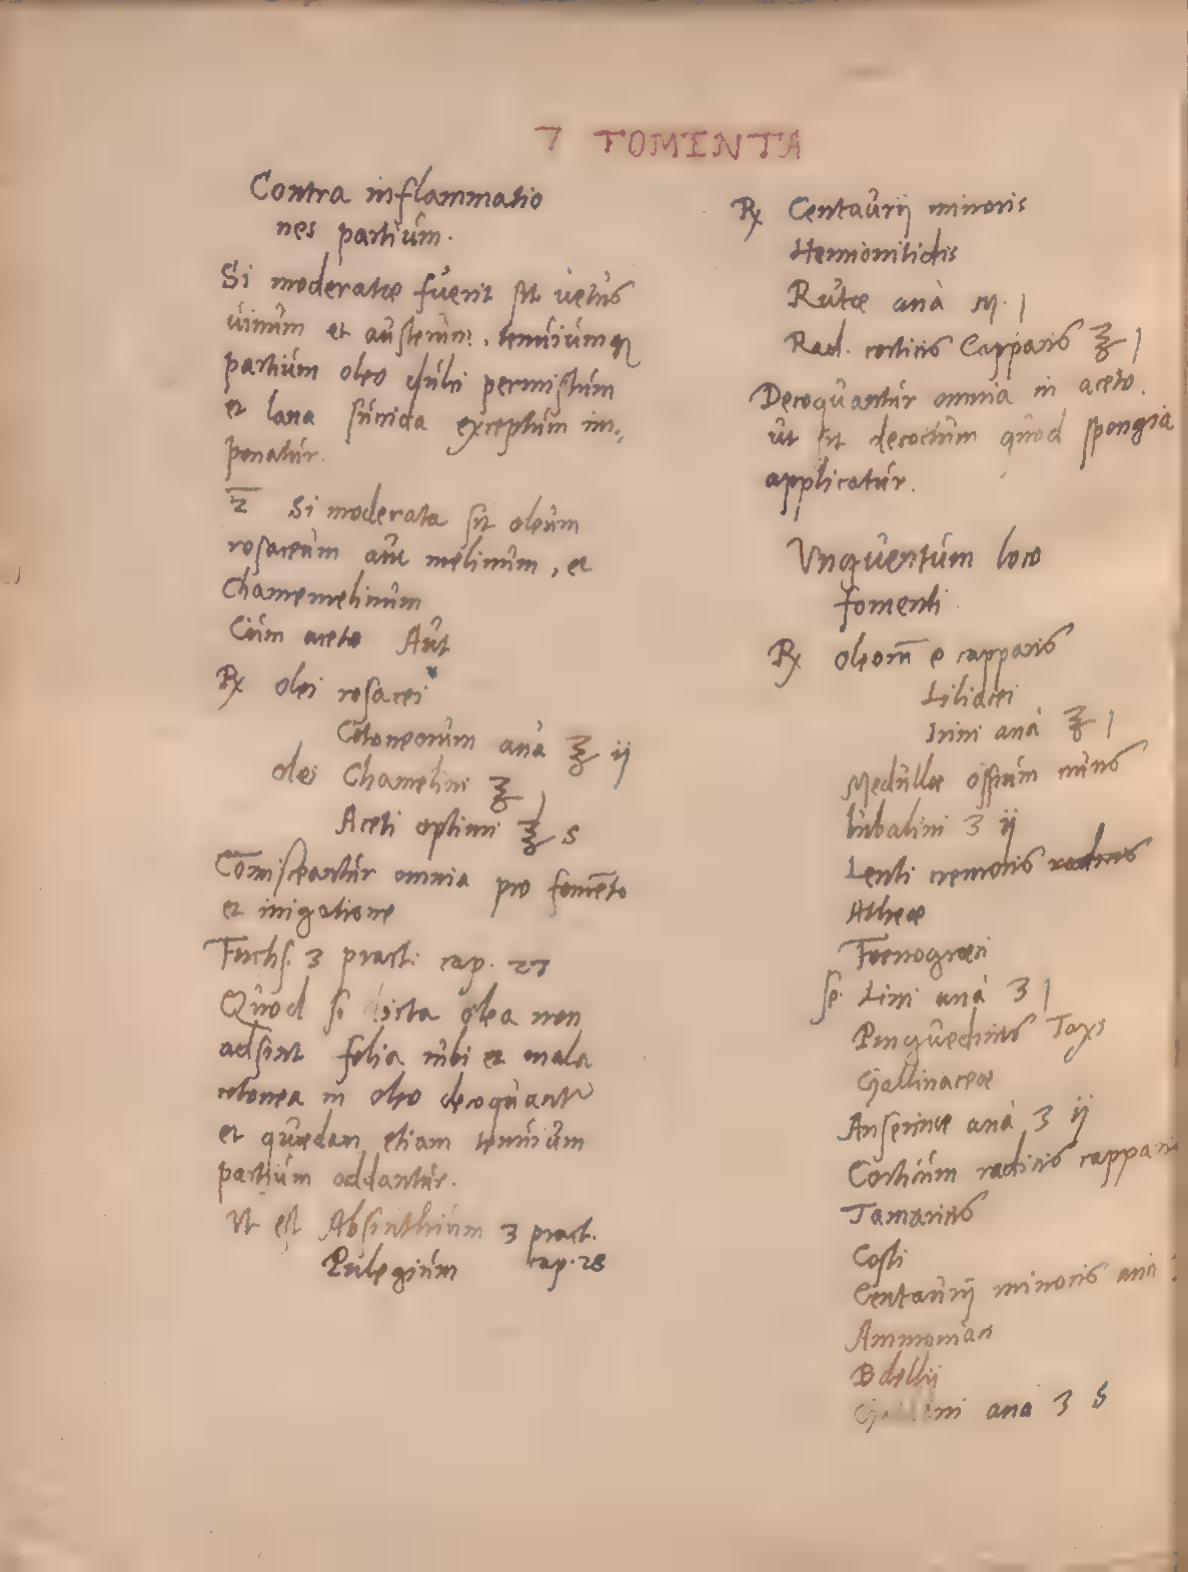 7 TOMENTA
Contra inflammatio
nes partium.
Si moderatæ fuerit sit uetus
uinum et austerum. tenuiumq
partium oleo dulci permistum
et lana sucida exceptum im,
ponatur.
2 Si moderata sit oleum
rosaceum aut melinum, et
Chamemelinum
Cum aceto Aut
℞ olei rosacei
Cotoneorum anà ℥ ij
olei Chamelini ℥ j
Aceti optimi ℥ s
Cōmisceantur omnia pro fomēto
et irrigatione
Fuchs. 3 pract. cap. 27
Quod si dicta olea non
adsint folia rubi et mala
cotonea in oleo decoquant
et quædam etiam tenuium
partium addantur.
Vt est Absinthium 3 pract.
Pulegium cap. 28
℞ Centaurij minoris
Hemionitidis
Rutæ anà M. j
Rad. corticis Capparis ℥ j
Decoquantur omnia in aceto.
ut sit decoctum quod spongia
applicatur.
Vnguentum loco
fomenti
℞ oleorū e capparis
Liliacei
Irini anà ℥ j
Medullæ ossium
ʒ ij
Lenti cremoris
Altheæ
Foenogræci
se. Lini anà ʒ j
Pinguedinis Taxi
Gallinaceæ
Anserinæ anà ʒ ij
Corticum radicis cappari
Tamaricis
Costi
Centaurij minoris anà
Ammoniaci
Bdellii
anà ʒ s